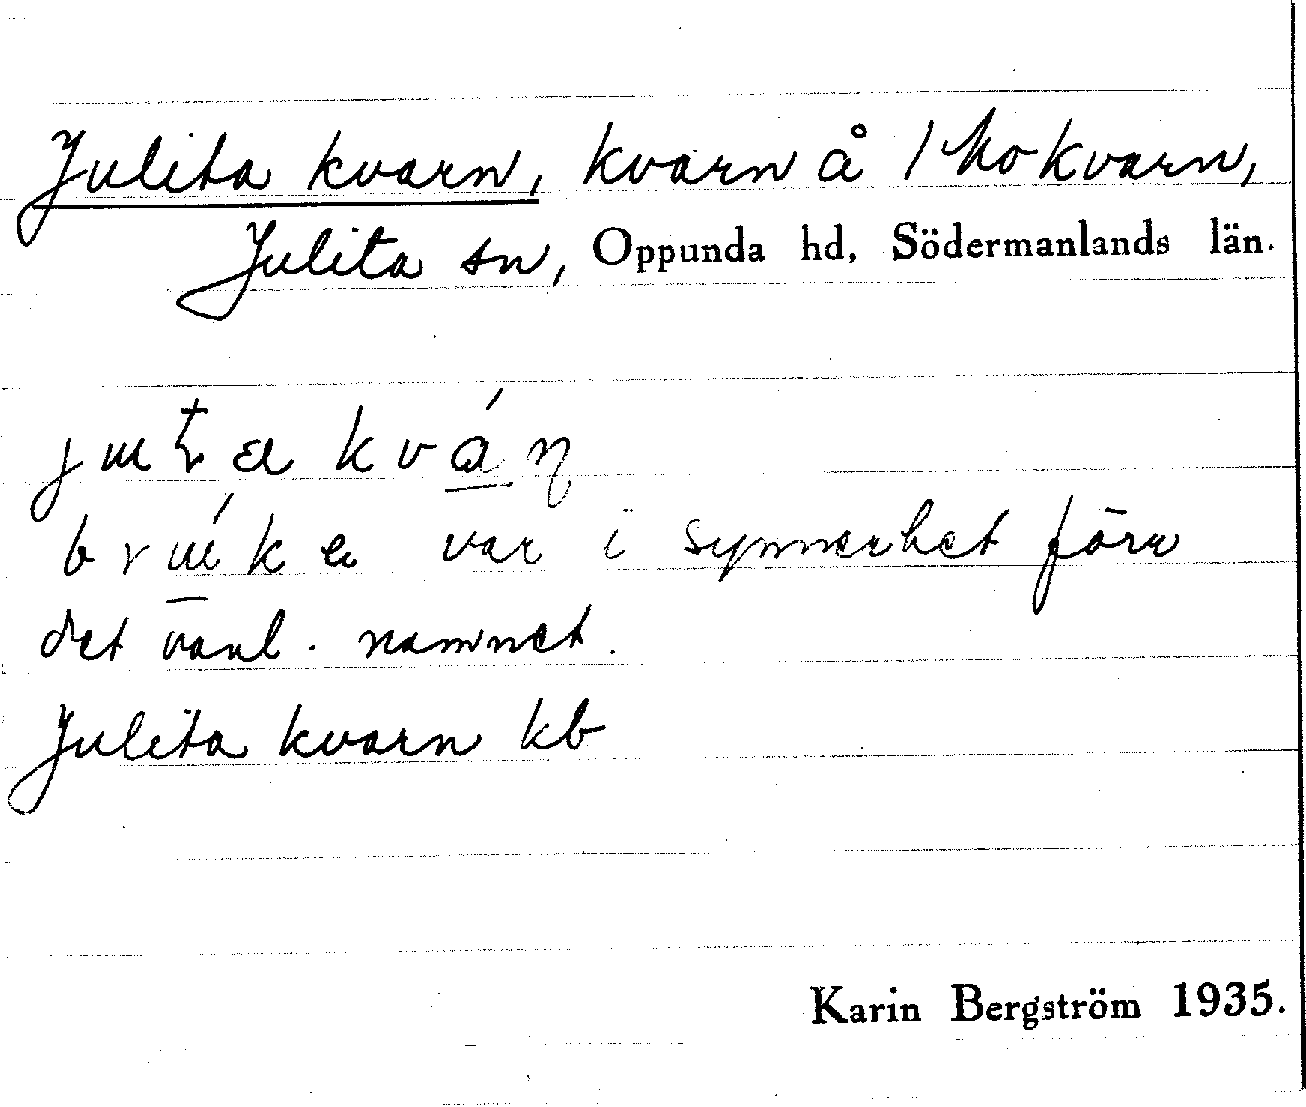 Julita kvarn, kvarn å 1 Mo kvarn,
Julita sn, Oppunda hd, Södermanlands län.
kván
var i synnerhet förr
det vanl. namnet.
Julita kvarn kb
Karin Bergström 1935.